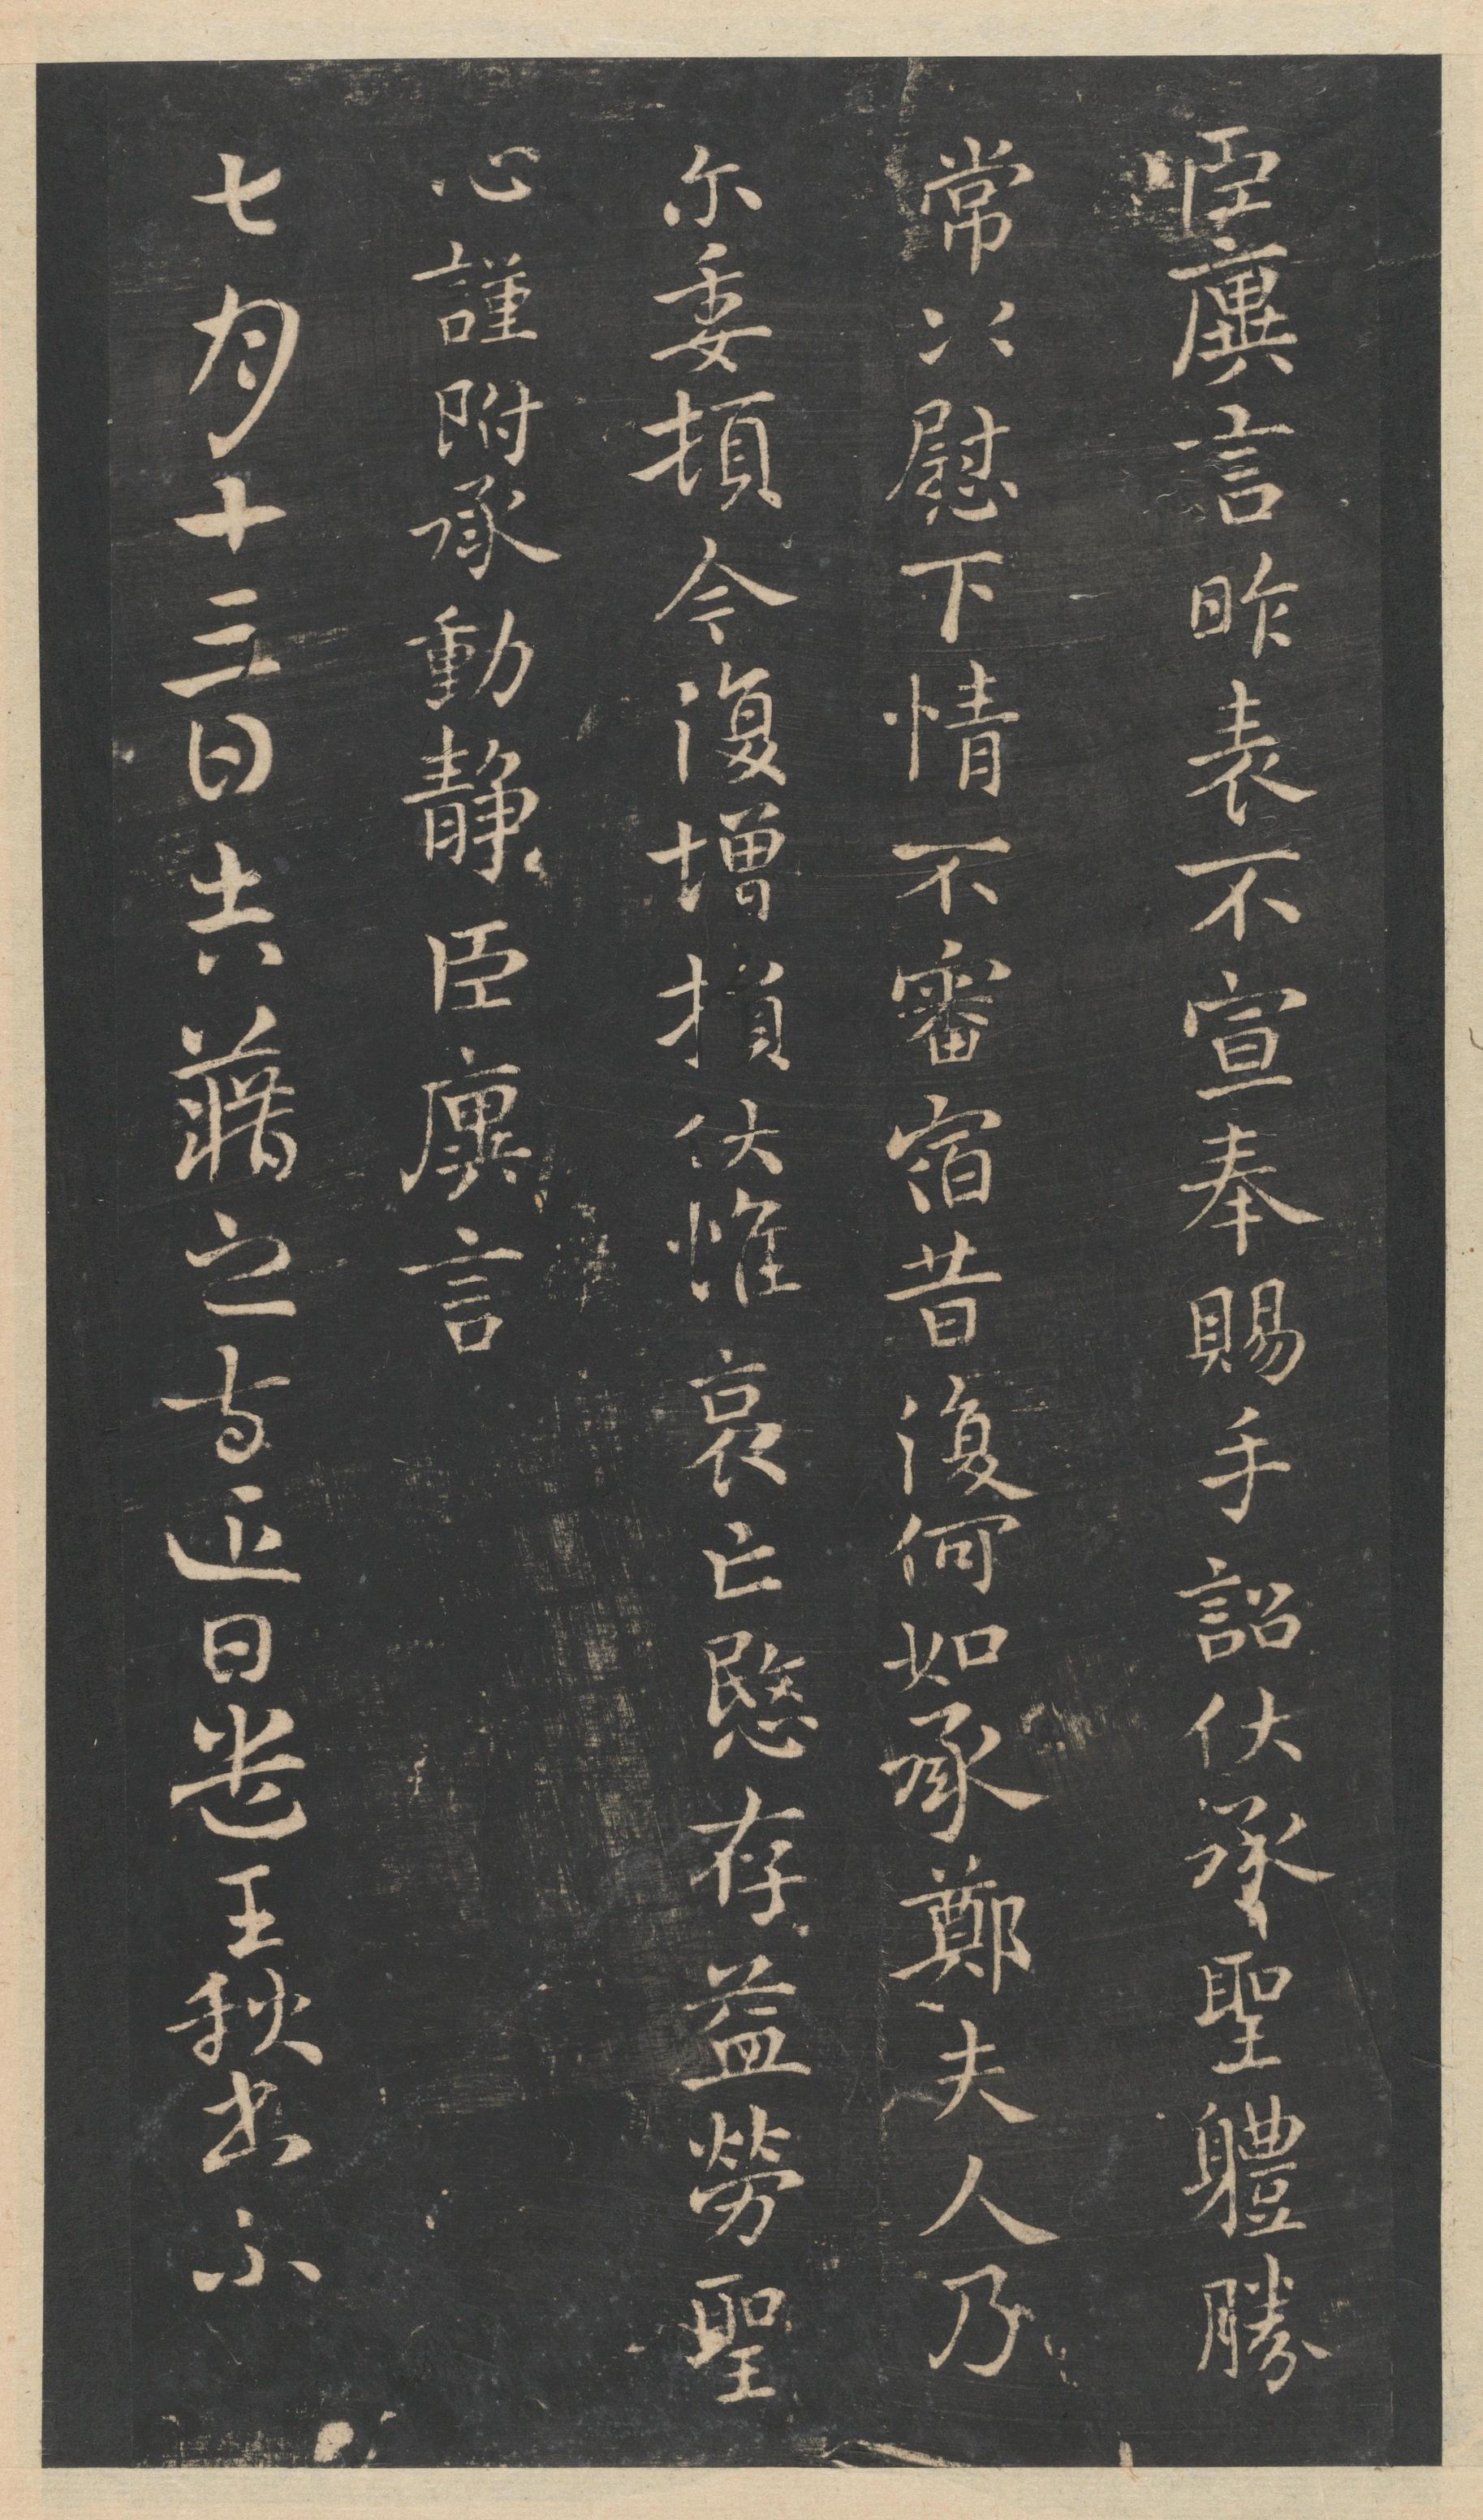 臣廙言昨表不宣奉賜手詔伏承聖軆勝
常以慰下情不審宿昔復何如承鄭夫人乃
尓委頓今復增損伏惟哀亡愍存益勞聖
心謹附承動靜臣廙言
七月十三日告藉之等近日遣王秋書不